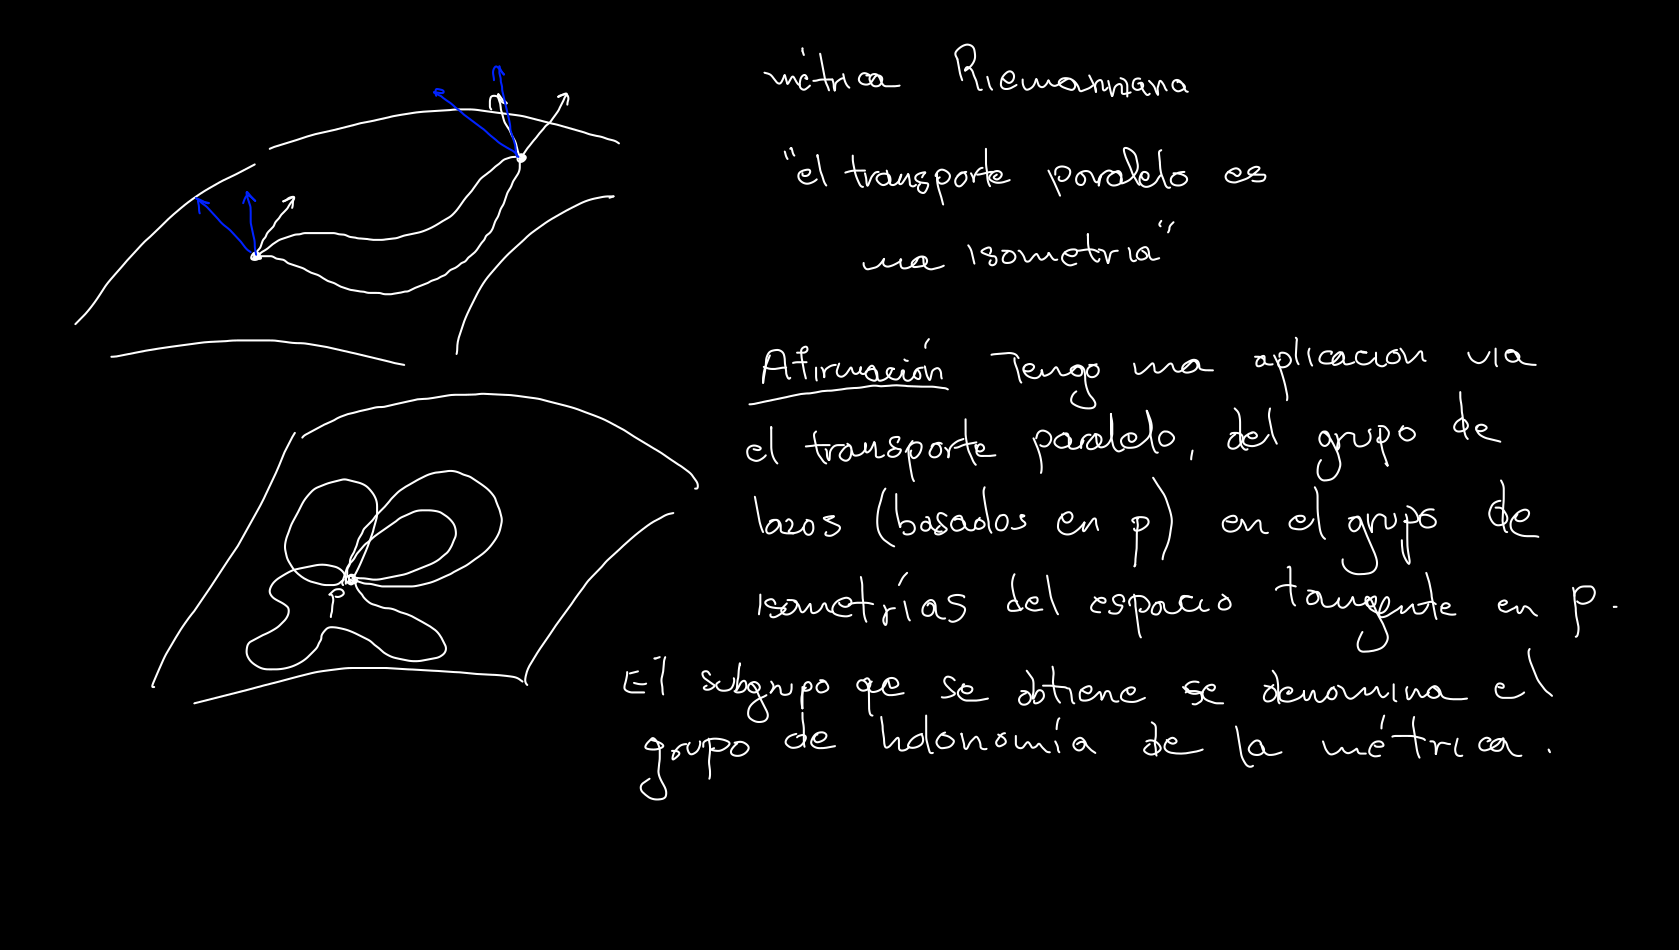 métrica Riemanniana
"el transporte paralelo es
una isometria"
Afirmación Tengo una aplicacion via
el transporte paralelo, del grupo de
lazos (basados en p) en el grupo de
isometrías del espacio tangente en p.
p
El subgrupo que se obtiene se denomina el
grupo de holonomía de la métrica.